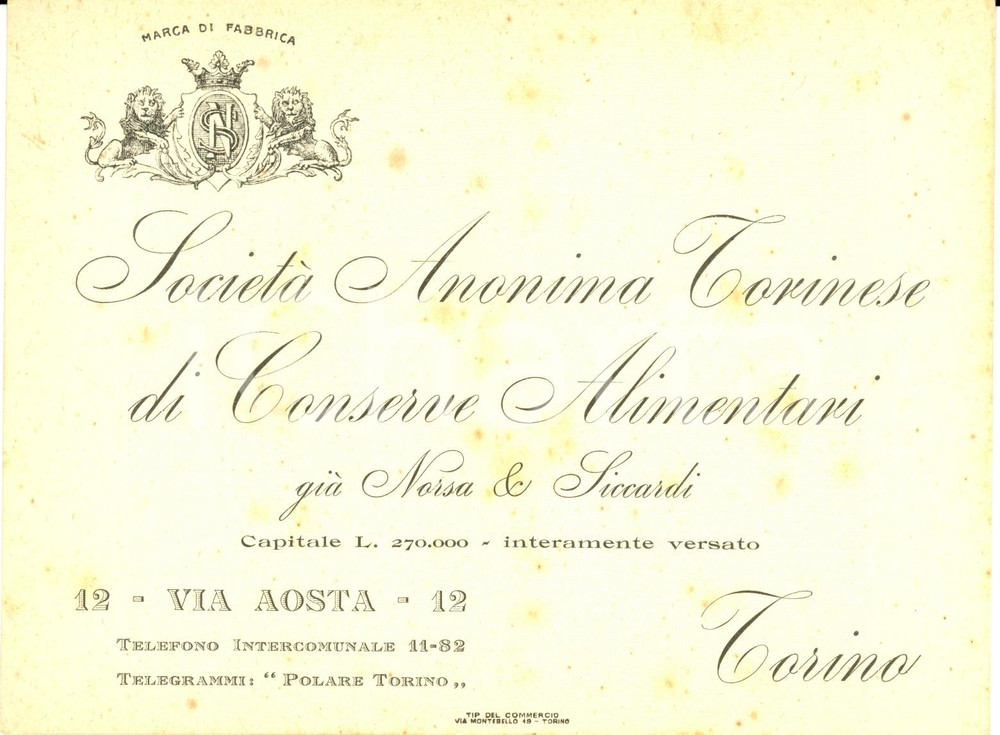 MARCA DI FABBRICA
NS
Società Anonima Torinese
di Conserve Alimentari
già Norsa & Siccardi
Capitale L. 270.000 - interamente versato
12 - VIA AOSTA - 12
TELEFONO INTERCOMUNALE 11-82
TELEGRAMMI: “ POLARE TORINO „
Torino
TIP DEL COMMERCIO
VIA MONTEBELLO 19 - TORINO